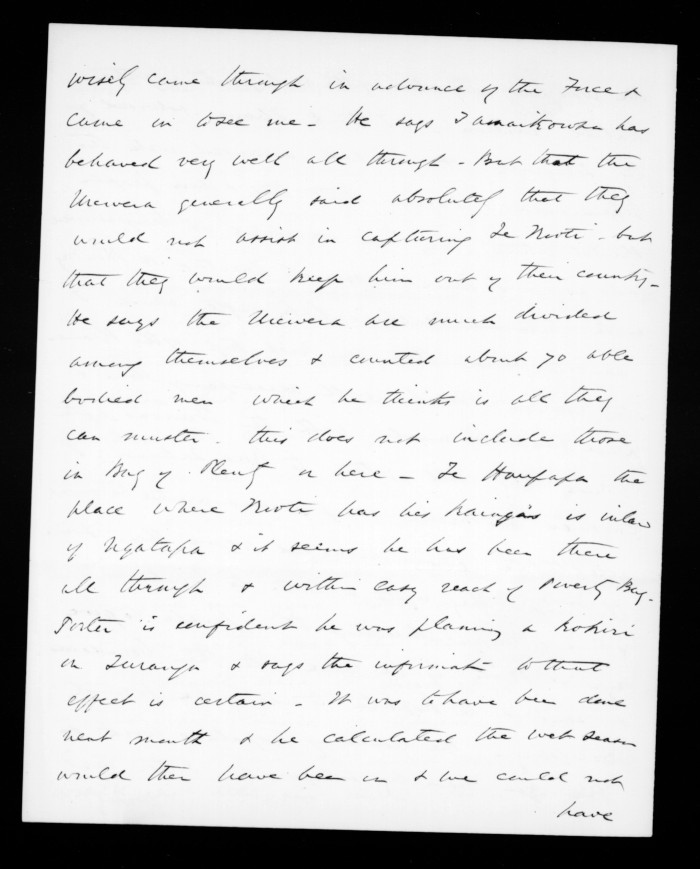 wisely came through in advance of the Force &
came in to see me - He says Tamaikowha has
behaved very well all through - But that the
Urewera generally said absolutely that they
would not assist in capturing Te Kooti - but
that they would keep him out of their country -
He says the Urewera are much divided
among themselves & counted about 70 able
bodied men which he thinks is all they
can muster - this does not include those
in Bay of Plenty or here - Te Houpapa the
place where Kooti has his kaingas is inland
of Ngatapa & it seems he has been there
all through & within easy reach of Poverty Bay -
Porter is confident he was planning a kokiri
on Turanga & says the informatn to that
effect is certain - It was to have been done
next month & he calculated the wet season
would then have been in & we could not
have